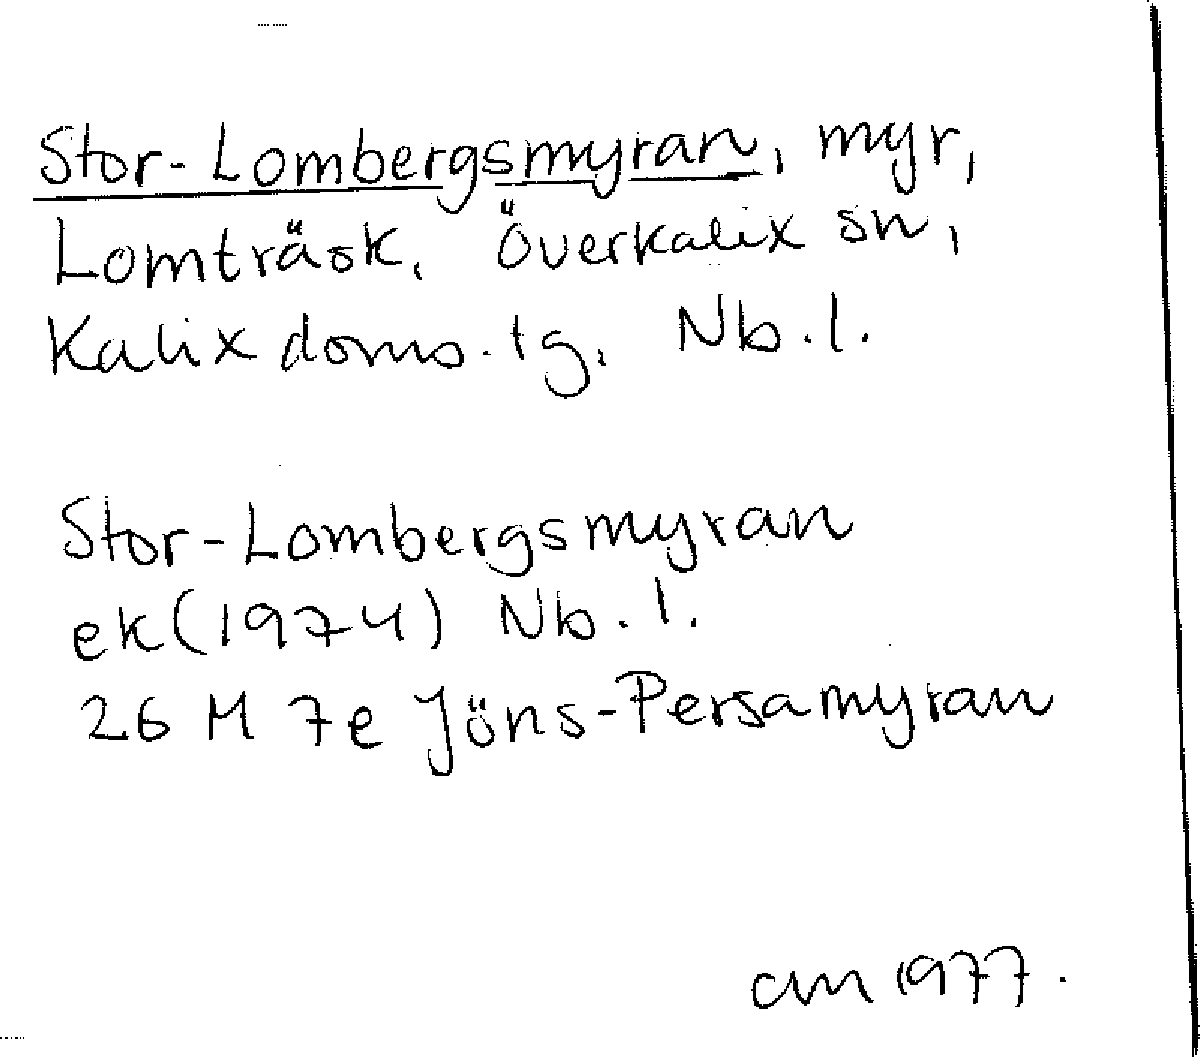 Stor-Lombergsmyran, myr,
Lomträsk, Överkalix sn,
Kalix doms.tg, Nb.l.
Stor-Lombergsmyran
ek(1974) Nb.l.
26 M 7e Jöns-Persamyran
am 1977.